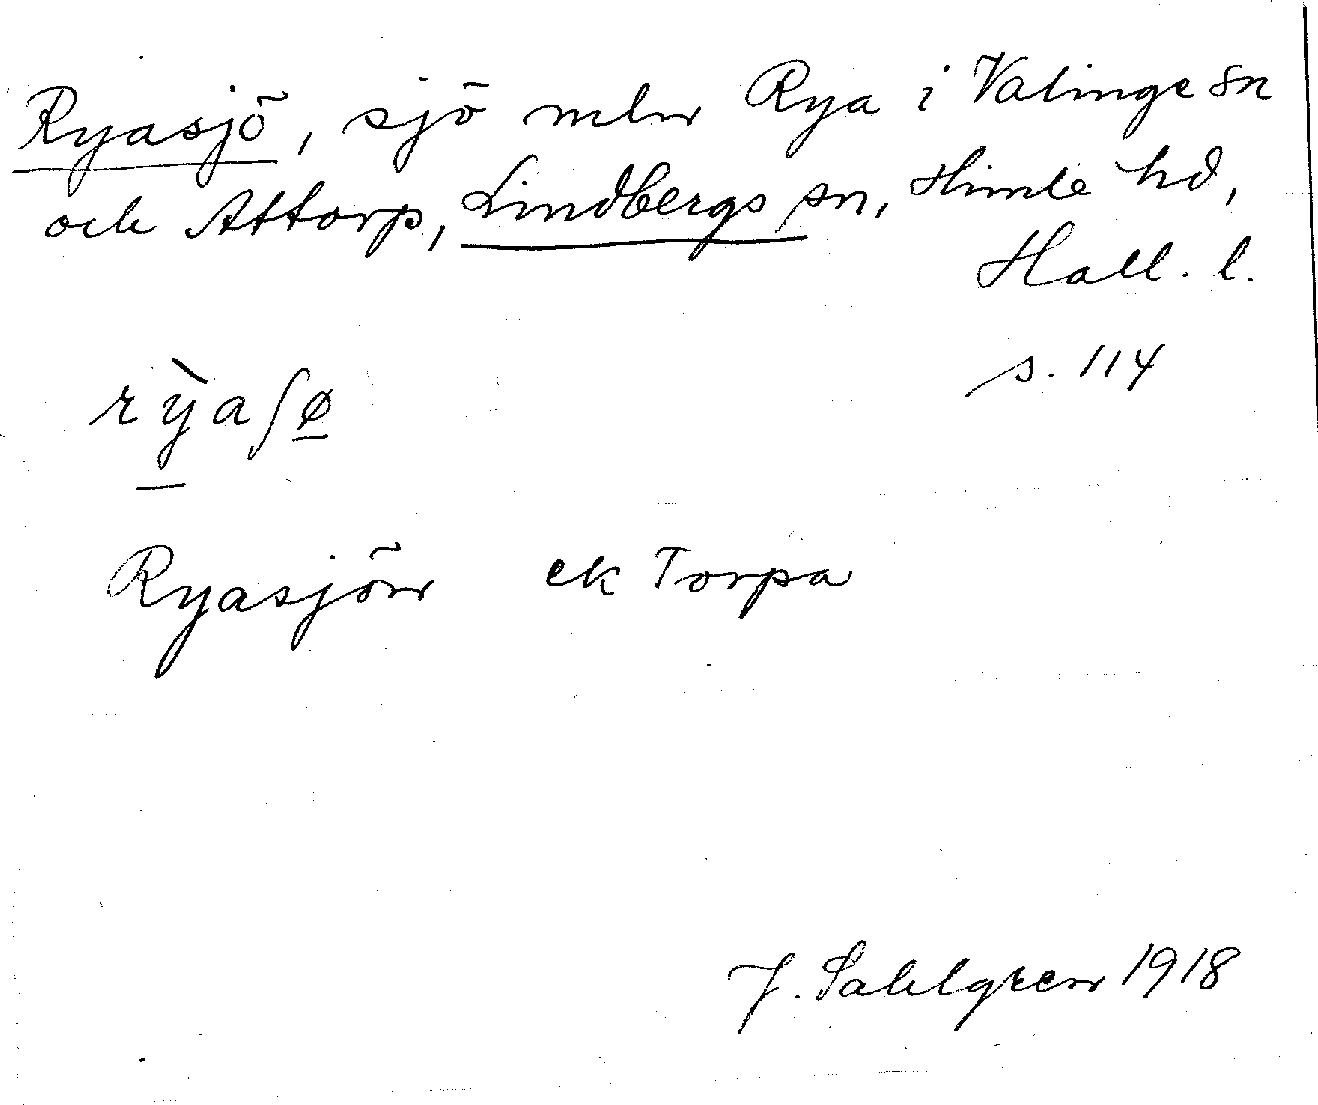 Ryasjö, sjö mln Rya i Valinge sn
och Attorp, Lindbergs sn, Himle hd,
Hall. l.
s. 114
rỳaʃø
Ryasjön ek Torpa
J. Sahlgren 1918